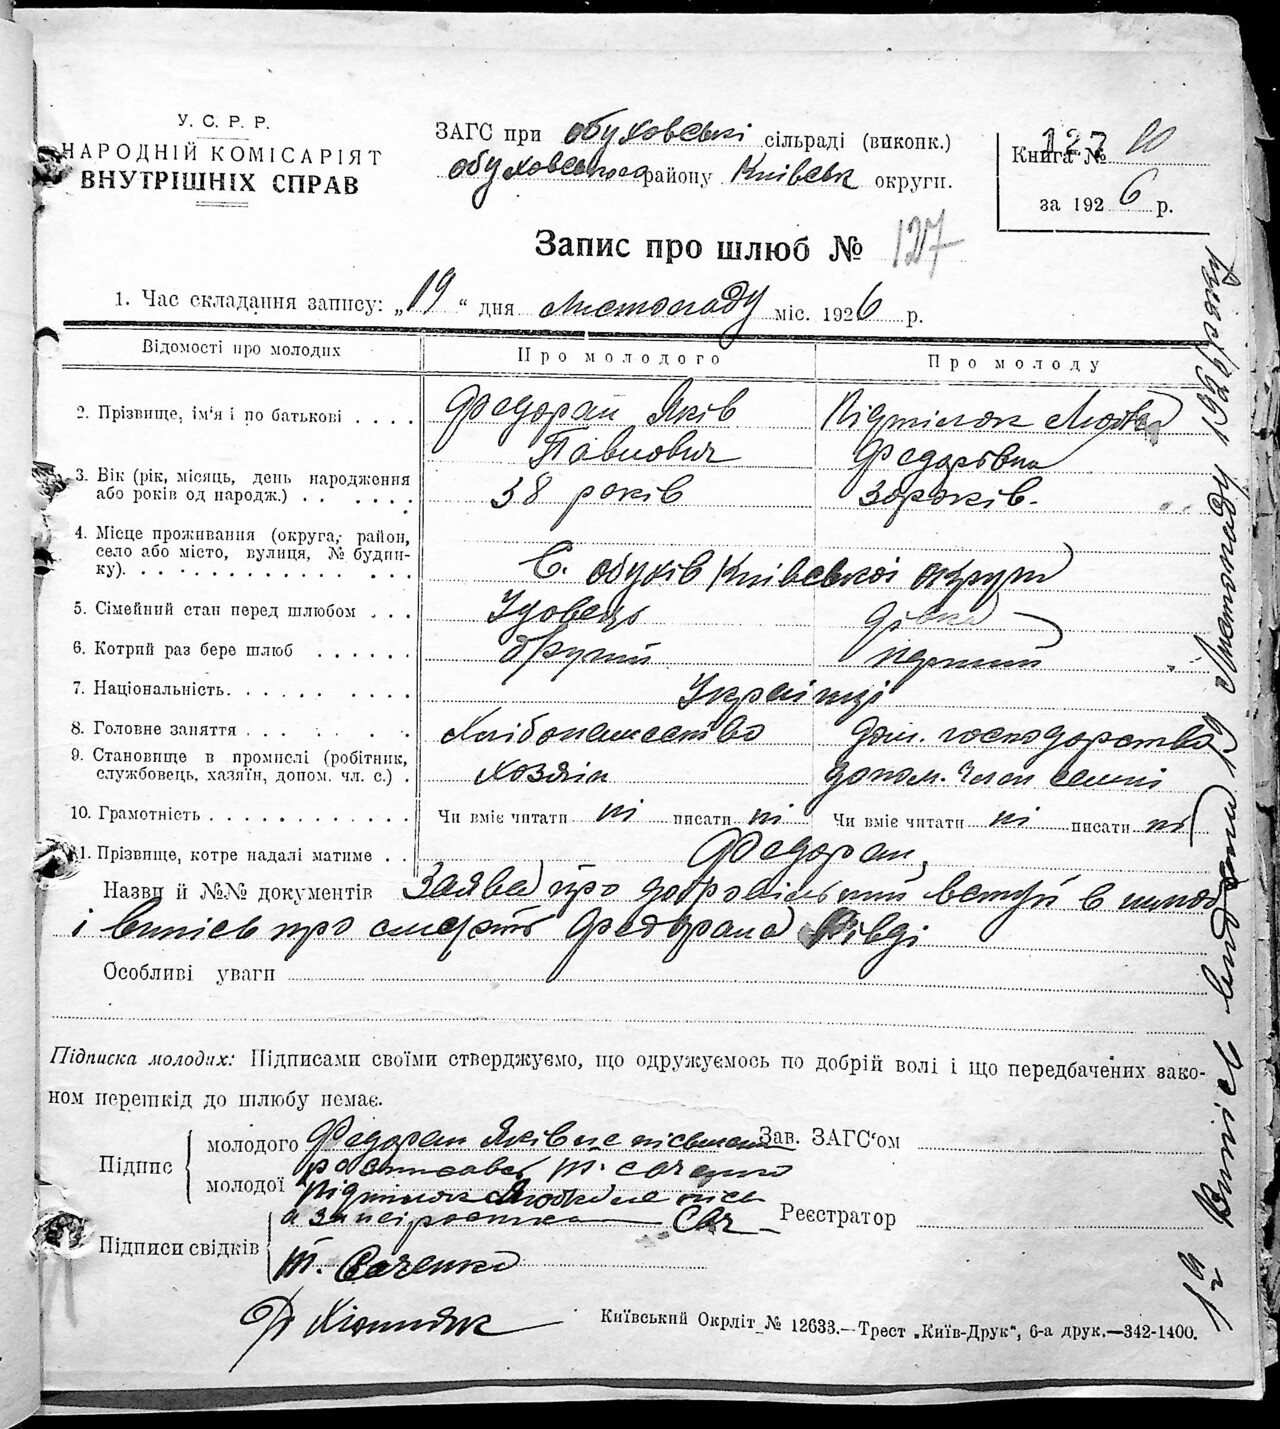 У. С. Р. Р.
НАРОДНІЙ КОМІСАРІЯТ
ВНУТРІШНІХ СПРАВ
ЗАГС при Обуховські сільраді (виконк.)
Обуховського району Київськ округи.
127
Книга № 20
за 1926 р.
Запис про шлюб № 127
1. Час складання запису: „19“ дня Листопаду міс. 1926 р.
Відомості про молодих Про молодого Про молоду
2. Прізвище, ім'я і по батькові . . . . Федоран Яків Підтілок Любов
Павлович Федорівна
3. Вік (рік, місяць, день народження
або років од народж.) . . . . . . 38 років 30 років.
4. Місце проживання (округа, район,
село або місто, вулиця, № будин-
ку). С. Обухів Київської округи
5. Сімейний стан перед шлюбом . . . Удовець дівка
6. Котрий раз бере шлюб . . . . . . другий перший
7. Національність. Українці
8. Головне заняття . . . . . . Хлібопашество дом. господарство
9. Становище в промислі (робітник,
службовець, хазяїн, допом. чл. с.) . хозяін допом. член семні
10. Грамотність Чи вміє читати ні писати ні Чи вміє читати ні писати ні
11. Прізвище, котре надалі матиме . . Федоран,
Назви й №№ документів Заява про добровільний вступ в шлюб
і випісь про смерть Федорана
Особливі уваги
Підписка молодих: Підписами своїми стверджуємо, що одружуємось по добрій волі і що передбачених зако-
ном перешкід до шлюбу немає.
Підпис
молодого Федоран Яків не письмен
росписався Т. Саченко
молодої Підтілок Любов не пись
а за неі росписа Сач
Зав. ЗАГС'ом
Реєстратор
Підписи свідків
Т. Саченко
Київський Окрліт № 12633.—Трест „Київ-Друк“, 6-а друк.—342-1400.
Випіс видана 19 Листопаду 1926 року